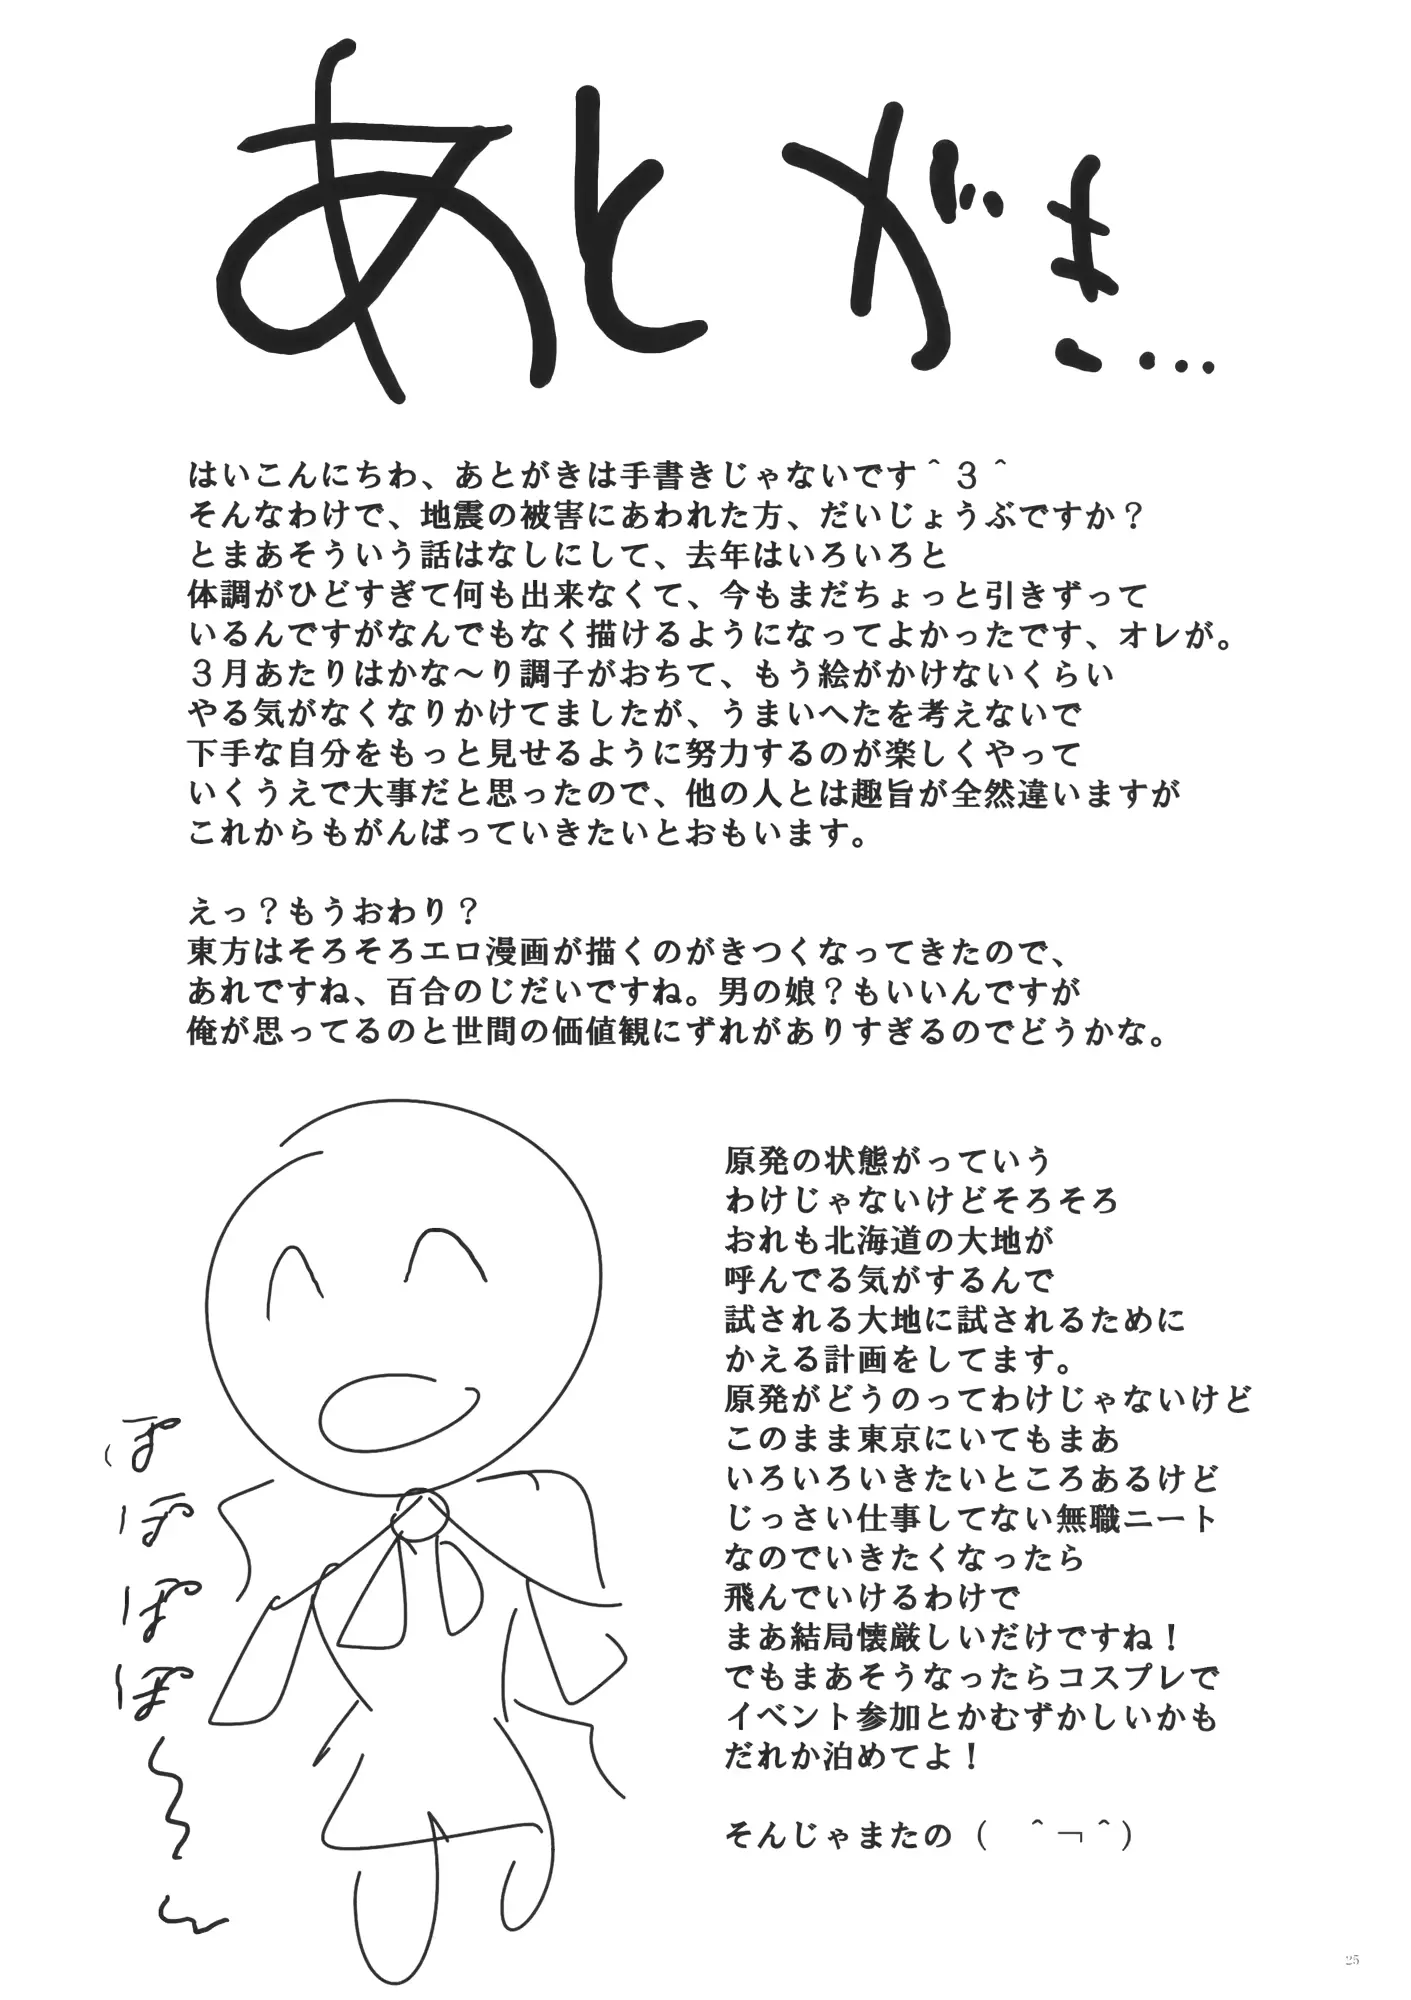 あとがき...
はいこんにちわ、あとがきは手書きじゃないです＾３＾
そんなわけで、地震の被害にあわれた方、だいじょうぶですか？
とまあそういう話はなしにして、去年はいろいろと
体調がひどすぎて何も出来なくて、今もまだちょっと引きずって
いるんですがなんでもなく描けるようになってよかったです、オレが。
３月あたりはかな～り調子がおちて、もう絵がかけないくらい
やる気がなくなりかけてましたが、うまいへたを考えないで
下手な自分をもっと見せるように努力するのが楽しくやって
いくうえで大事だと思ったので、他の人とは趣旨が全然違いますが
これからもがんばっていきたいとおもいます。
えっ？もうおわり？
東方はそろそろエロ漫画が描くのがきつくなってきたので、
あれですね、百合のじだいですね。男の娘？もいいんですが
俺が思ってるのと世間の価値観にずれがありすぎるのでどうかな。
原発の状態がっていう
わけじゃないけどそろそろ
おれも北海道の大地が
呼んでる気がするんで
試される大地に試されるために
かえる計画をしてます。
原発がどうのってわけじゃないけど
このまま東京にいてもまあ
いろいろいきたいところあるけど
じっさい仕事してない無職ニート
なのでいきたくなったら
飛んでいけるわけで
まあ結局懐厳しいだけですね！
でもまあそうなったらコスプレで
イベント参加とかむずかしいかも
だれか泊めてよ！
そんじゃまたの（　＾￢＾）
ぽぽぽぽ～ん
25